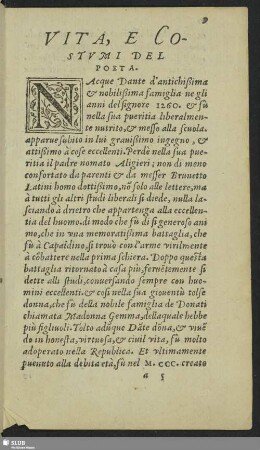 9
VITA, E CO-
STVMI DEL
POETA.
NAcque Dante d'antichißima
& nobilißima famiglia ne gli
anni del signore 1260. & fù
nella sua pueritia liberalmen-
te nutrito, & messo alla scuola.
apparue subito in lui grauißimo ingegno, &
attißimo à cose eccellenti. Perdè nella sua pue-
ritia il padre nomato Aligieri; non di meno
confortato da parenti & da messer Brunetto
Latini homo dottißimo, nõ solo alle lettere, ma
à tutti gli altri studi liberali si diede, nulla la-
sciando à drietro che appartenga alla eccellen-
tia del huomo. di modo che fù di si generoso ani-
mo, che in vna memoratißima battaglia, che
fù à Capaldino, si trouò con l'arme virilmente
à cõbattere nella prima schiera. Doppo questa
battaglia ritornato à casa più feruẽtemente si
dette alli studi, conuersando sempre con huo-
mini eccellenti. & cosi nella sua giouentù tolse
donna, che fù della nobile famiglia de Donati
chiamata Madonna Gemma, della quale hebbe
più figliuoli. Tolto adũque Dãte dõna, & viuẽ
do in honesta, virtuosa, & ciuil vita, fù molto
adoperato nella Republica. Et vltimamente
peruenuto alla debita età, fù nel M. CCC. creato
a 5
SLUB